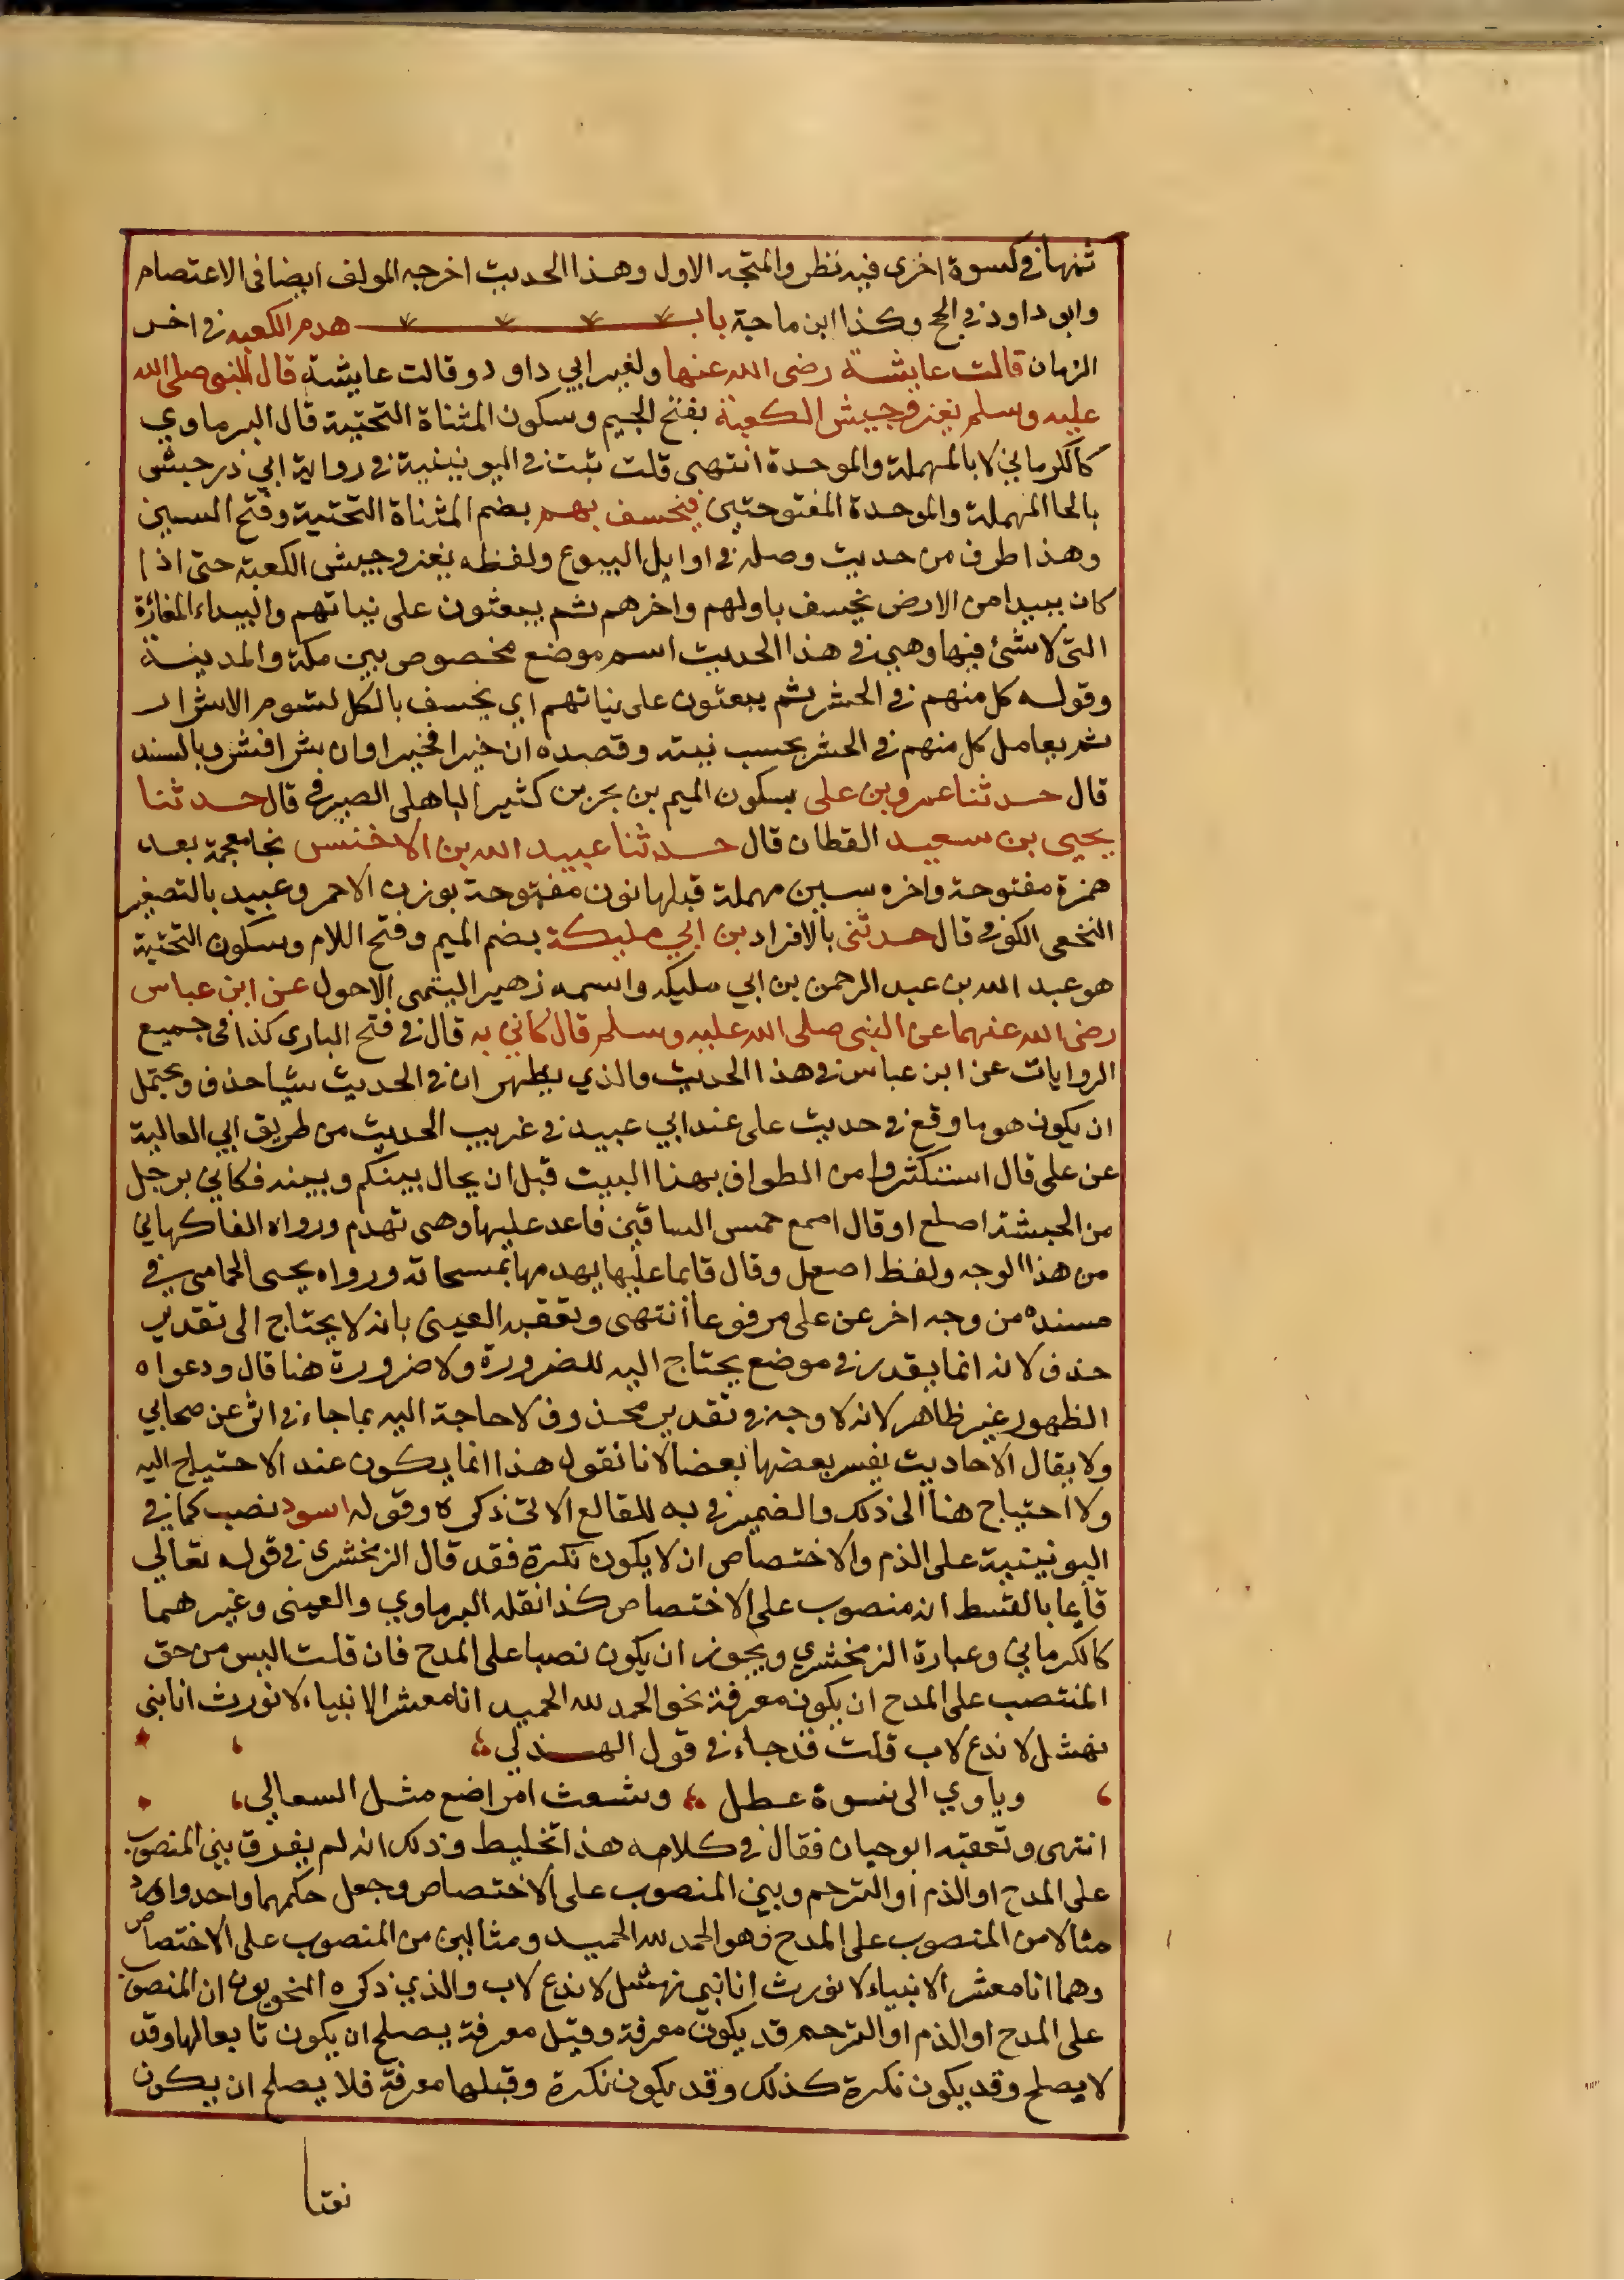 ثمنها في كسوة اخرى فيه نظر والمتجه الاول وهذا الحديث اخرجه المولف ايضا في الاعتصام
وابو داود في الحج وكذا ابن ماجة باب هدم الكعبه في اخر
الزمان قالت عايشة رضى الله عنها ولغير ابي داود وقالت عايشة قال النبي صلى الله
عليه وسلم يغزو جيش الكعبة بفتح الجيم وسكون المثناة التحتية قال البرماوي
كالكرماني لا بالمهملة والموحدة انتهى قلت ثبت في اليونينية في رواية ابي ذر حبش
بالحا المهملة والموحدة المفتوحتين فيخسف بهم بضم المثناة التحتية وفتح السين
وهذا طرف من حديث وصله في اوايل البيوع ولفظه يغزو جيش الكعبة حتى اذا
كان ببيدا من الارض يخسف باولهم واخرهم ثم يبعثون على نياتهم والبيداء المفازة
التى لا شئ فيها وهي في هذا الحديث اسم موضع مخصوص بين مكة والمدينة
وقوله كل منهم في الحشر ثم يبعثون على نياتهم اي يخسف بالكل لشوم الاشرار
ثم يعامل كل منهم في الحشر بحسب نيته وقصده ان خيرا فخيرا وان شرا فشر وبالسند
قال حدثنا عمرو بن على بسكون الميم بن بحر بن كثير الباهلى الصيرفى قال حدثنا
يحيى بن سعيد القطان قال حدثنا عبيد الله بن الاخنس بخا معجمة بعد
همزة مفتوحة واخره سين مهملة قبلها نون مفتوحة بوزن الاحمر وعبيد بالتصغير
النخعى الكوفي قال حدثنى بالافراد بن ابي مليكة بضم الميم وفتح اللام وسكون التحتية
هو عبد الله بن عبد الرحمن بن ابي مليكه واسمه زهير اليتمى الاحول عن ابن عباس
رضى الله عنهما عن النبى صلى الله عليه وسلم قال كاني به قال في فتح البارى كذا في جميع
الروايات عن ابن عباس في هذا الحديث والذي يظهر ان في الحديث شيا حذف ويحتمل
ان يكون هو ما وقع في حديث على عند ابي عبيد في غريب الحديث من طريق ابي العالية
عن على قال استكثروا من الطواف بهذا البيت قبل ان يحال بينكم وبينه فكاني برجل
من الحبشة اصلع او قال اصمع حمس الساقين قاعد عليها وهى تهدم ورواه الفاكهاني
من هذا الوجه ولفظ اصعل وقال قايما عليها يهدمها بمسحاته ورواه يحيى الحمامي في
مسنده من وجه اخر عن على مرفوعا انتهى وتعقبه العينى بانه لا يحتاج الى تقدير
حذف لانه انما يقدر في موضع يحتاج اليه للضرورة ولا ضرورة هنا قال ودعواه
الظهور غير ظاهر لانه لا وجه في تقدير محذوف لا حاجة اليه بما جاء في اثر عن صحابي
ولا يقال الاحاديث يفسر بعضها بعضا لانا نقول هذا انما يكون عند الاحتياج اليه
ولا احتياج هنا الى ذلك والضمير في به للقالع الاتى ذكره وقوله اسود نصب كما في
اليونينية على الذم والاختصاص ان لا يكون نكرة فقد قال الزمخشرى في قوله تعالي
قايما بالقسط انه منصوب على الاختصاص كذا نقله البرماوي والعينى وغيرهما
كالكرماني وعبارة الزمخشري ويجوز ان يكون نصبا على المدح فان قلت اليس من حق
المنتصب على المدح ان يكون معرفة نحو الحمد لله الحميد انا معشر الانبياء لا نورث انا بنى
نهشل لا ندع لاب قلت قد جاء في قول الهذلي
وياوي الى نسوة عطل وشعث امراضع مثل السعالي
انتهى وتعقبه ابو حيان فقال في كلامه هذا تخليط وذلك انه لم يفرق بين المنصوب
على المدح او الذم او الترحم وبين المنصوب على الاختصاص وجعل حكمهما واحد واورد
مثالا من المنصوب على المدح وهو الحمد لله الحميد ومثالين من المنصوب على الاختصاص
وهما انا معشر الانبياء لا نورث انا بني نهشل لا ندع لاب والذي ذكره النحويون ان المنصوب
على المدح او الذم او الترحم قد يكون معرفة وقبل معرفة يصلح ان يكون تابعا لها وقد
لا يصلح وقد يكون نكرة كذلك وقد يكون نكرة وقبلها معرفة فلا يصلح ان يكون
نعتا